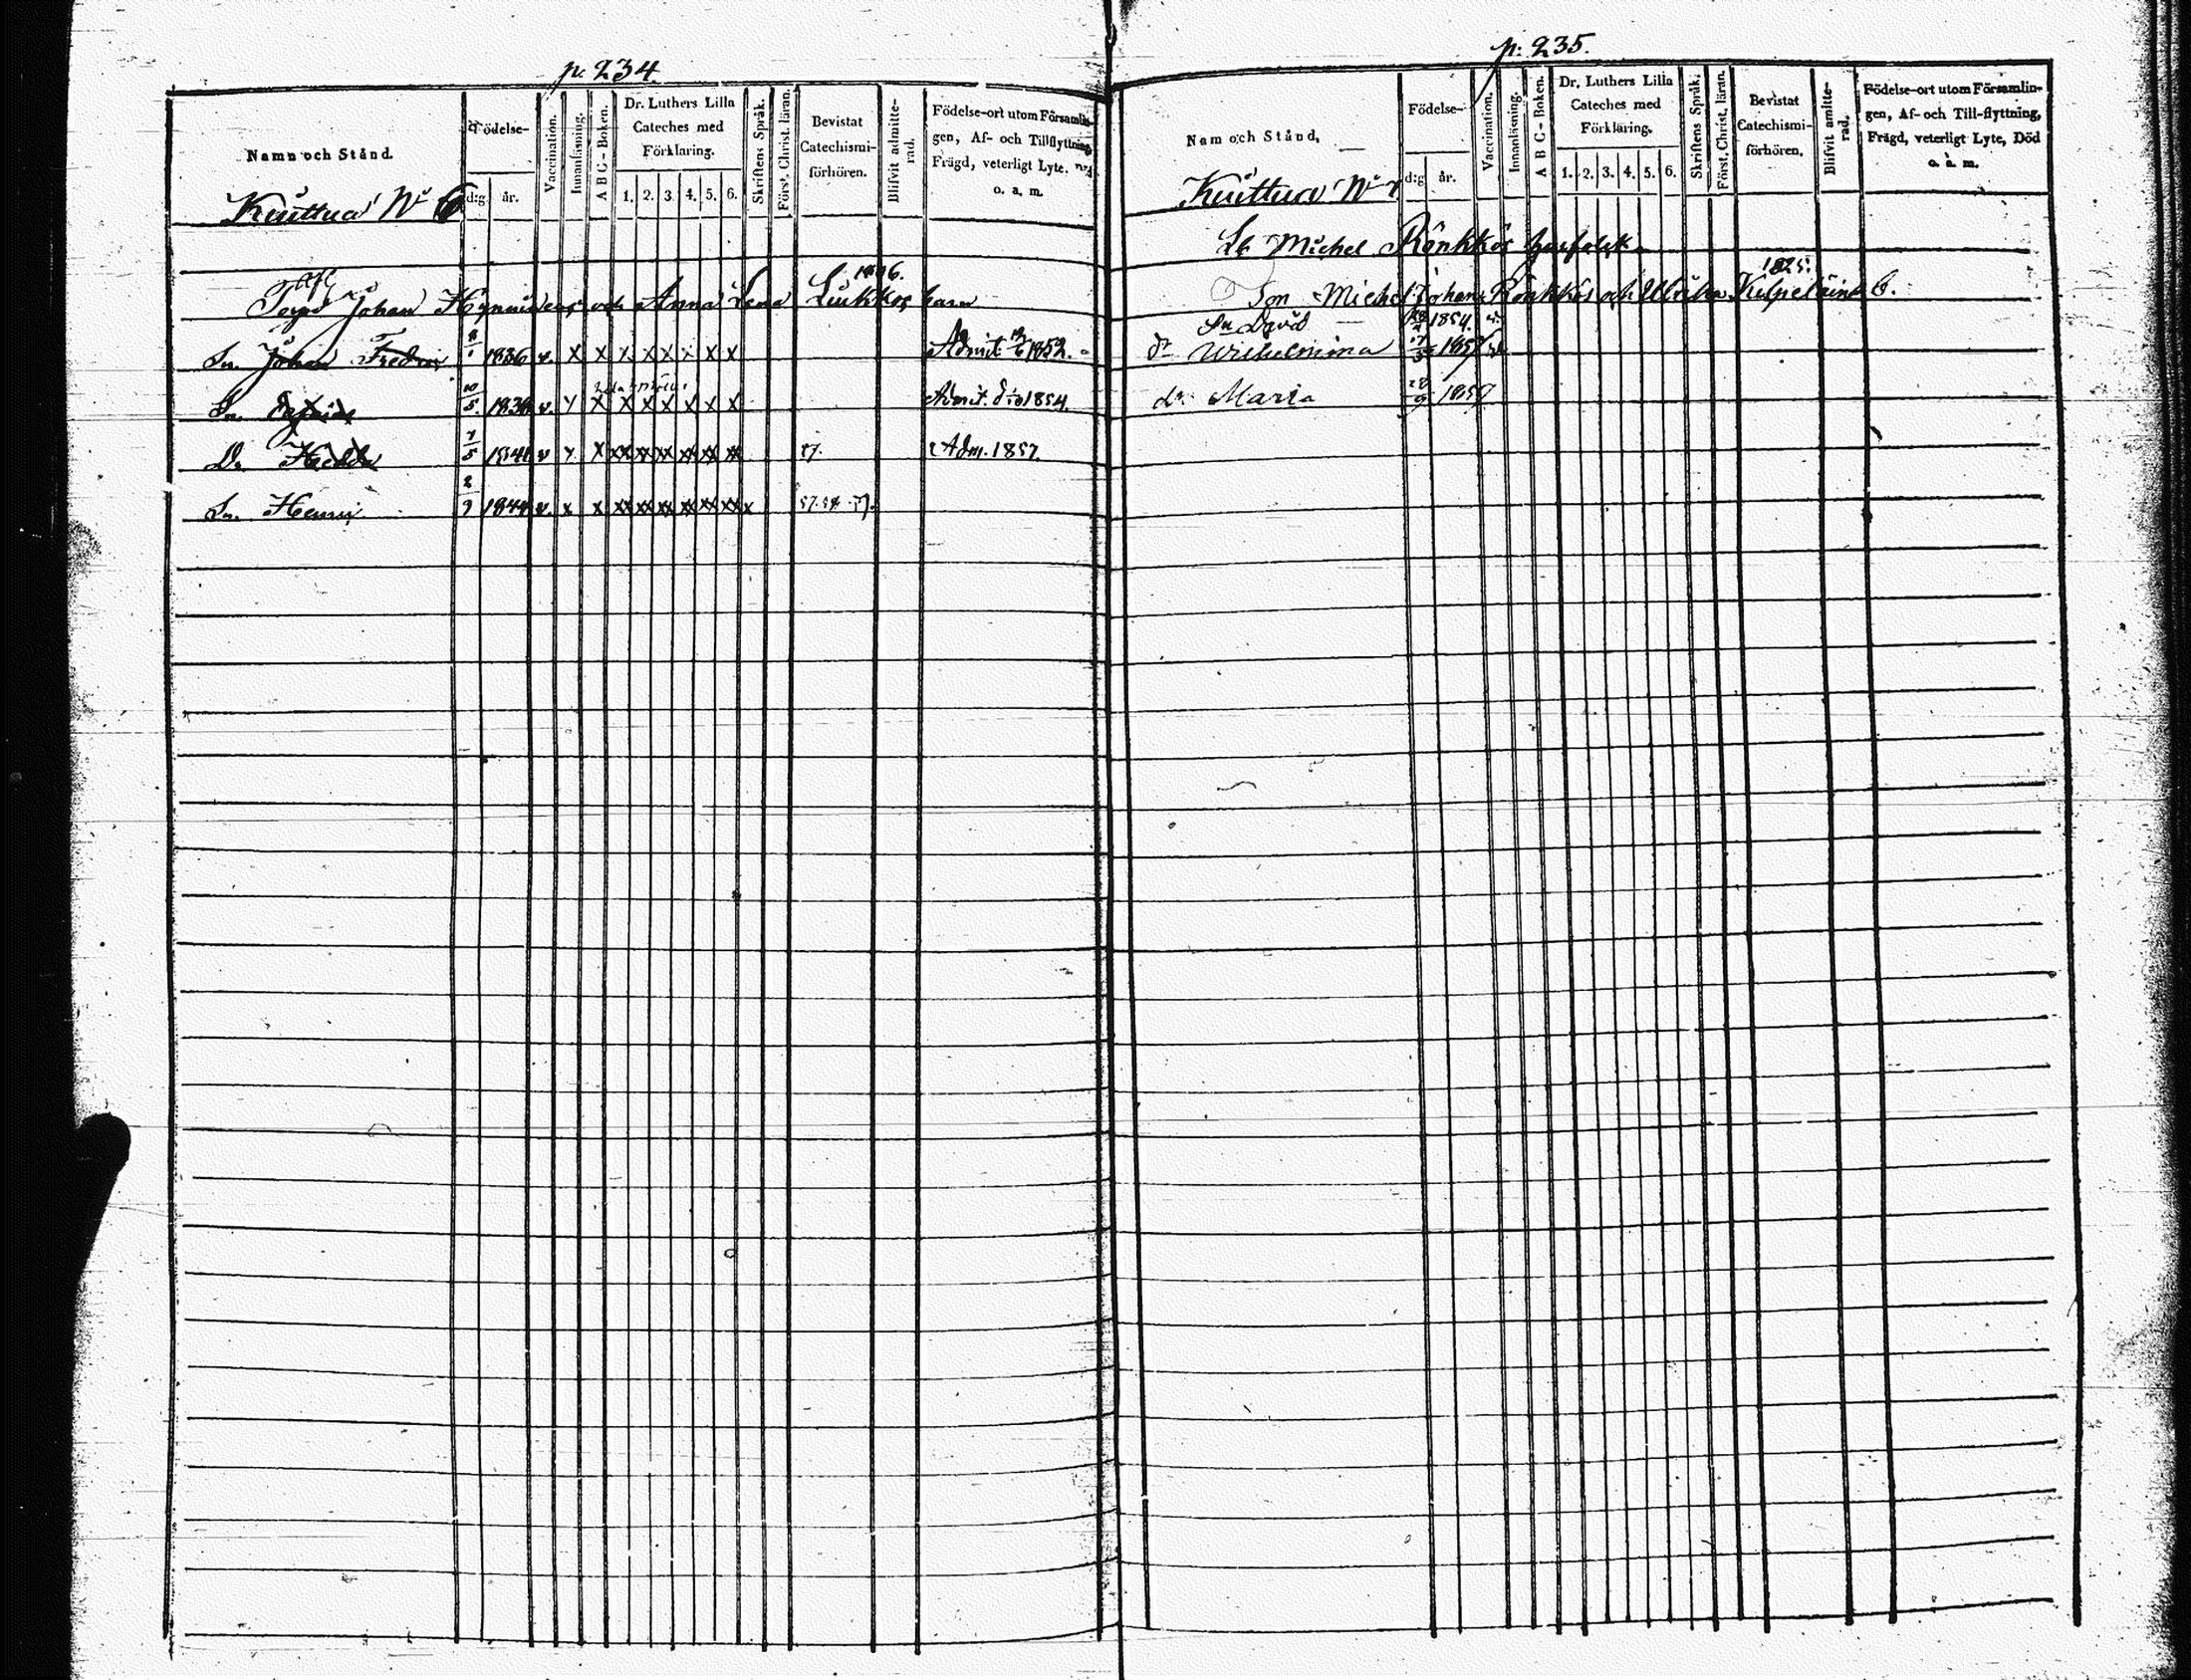 p. 234
Namn och Stånd.
Födelse-
d:g
år.
Vaccination.
Innanläsning.
A B C - Boken.
Dr. Luthers Lilla
Cateches med
Förklaring.
1. 2. 3. 4. 5. 6.
Skriftens Språk.
Först. Christ. läran.
Bevistat
Catechismi-
förhören.
Blifvit admitte-
rad.
Födelse-ort utom Församlin-
gen, Af- och Tillflyttning,
Frägd, veterligt Lyte,
o. a. m.
Kuittua N:o 6
Johan och Anna Lena Liukkos barn
Sn. Johan Fredric 1836 v. x x x x x x x x Admit. 1852.
Sn. v. x x x x x x x Admit. 1854.
D. Hedda v x 57. Adm. 1857
Sn. Henric 1844 v. x x
p. 235.
Namn och Stånd,
Födelse-
d:g
år.
Vaccination.
Innanläsning.
A B C - Boken.
Dr. Luthers Lilla
Cateches med
Förklaring.
1. 2. 3. 4. 5. 6.
Skriftens Språk.
Först. Christ. läran.
Bevistat
Catechismi-
förhören.
Blifvit amitte-
rad.
Födelse-ort utom Församlin-
gen, Af- och Till-flyttning,
Frägd, veterligt Lyte, Död
o. a. m.
Kuittua N:o 7
Lb Michel Rönkkös
1825.
Son Michel Johan Rönkkös och Ulrika b.
Sn David 1854. v.
dr Wilhelmina 1857
dr Maria 1859